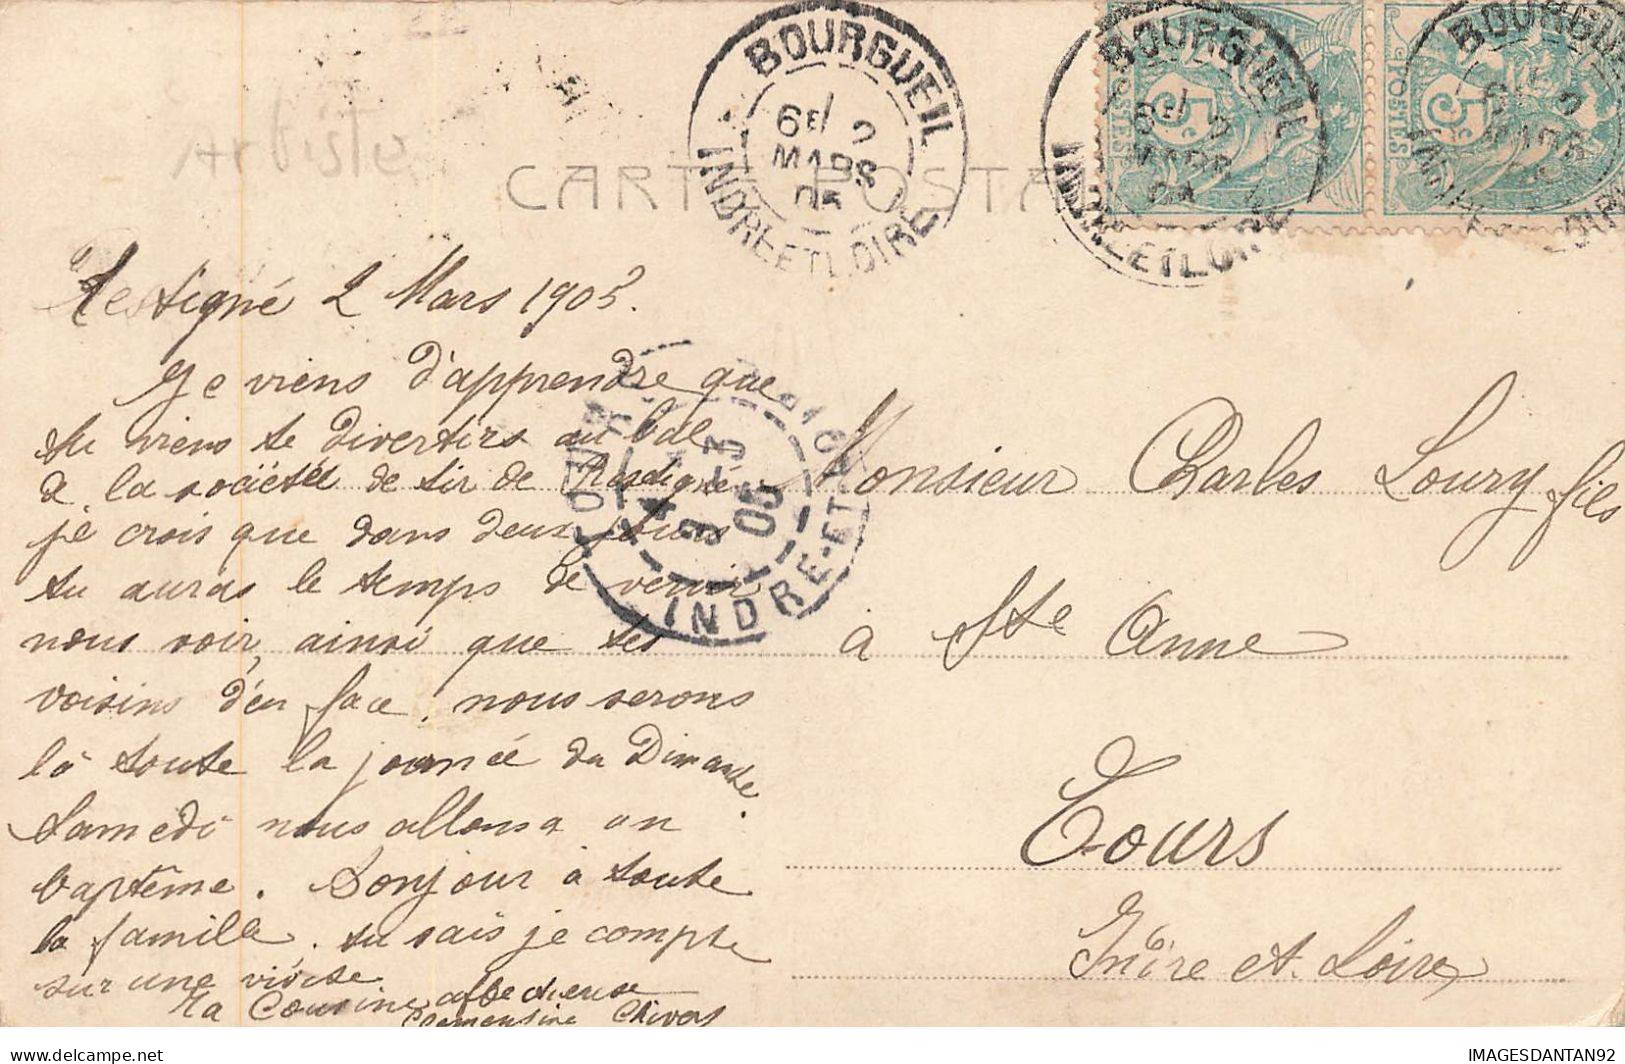 Artiste
CARTE POSTA
BOURGUEIL
6E 2
MARS
05
INDRE-ET-LOIRE
BOURGUEIL
6E 2
MARS
05
INDRE-ET-LOIRE
POSTES 5c
POSTES 5c
BOURGUEIL
MARS
Restigné 2 Mars 1905.
Je viens d'apprendre que
tu viens te divertirs au bal
de la société de tir de Restigné
je crois que dans deux jours
tu auras le temps de venir
nous voir, ainsi que tes
voisins d'en face, nous serons
là toute la journée du Dimanche.
Samedi nous allons a un
baptême. Bonjour à toute
la famille. tu sais je compte
sur une visite
Ta Cousine affectueuse
Clementine Chivers
TOURS
3
05
INDRE-ET-LOIRE
Monsieur Charles Loury fils
à Ste Anne
Tours
Indre et Loire
Delcampe.net
IMAGESDANTAN92